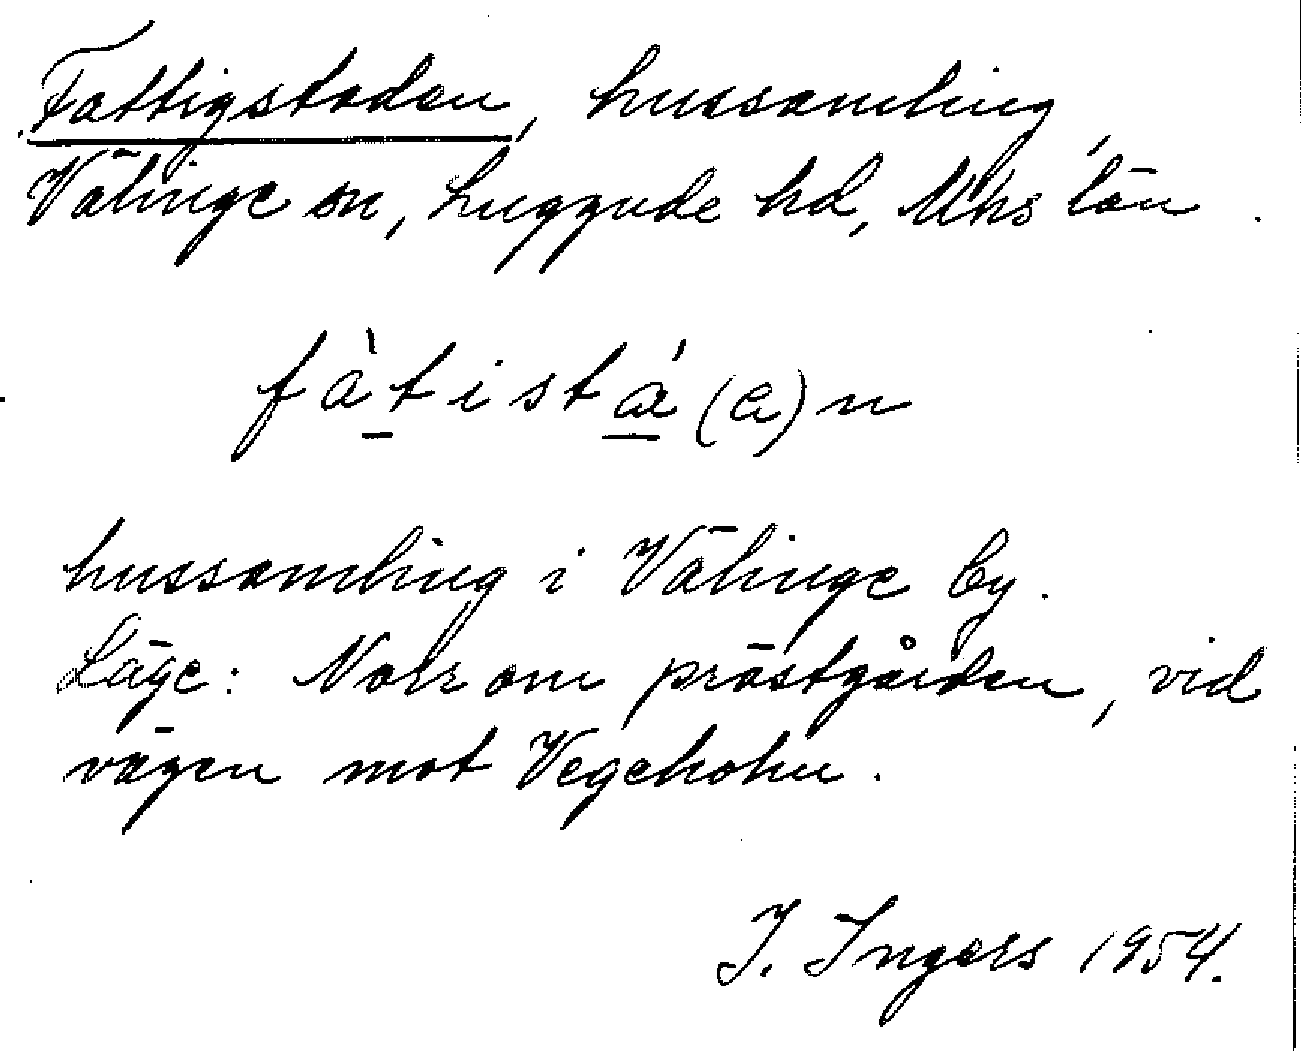 Fattigstaden, hussamling,
Välinge sn, Luggude hd, Mhs län.
fàtistá(a)n
hussamling i Välinge by.
Läge: Norr om prästgården, vid
vägen mot Vegeholm.
I. Ingers 1954.